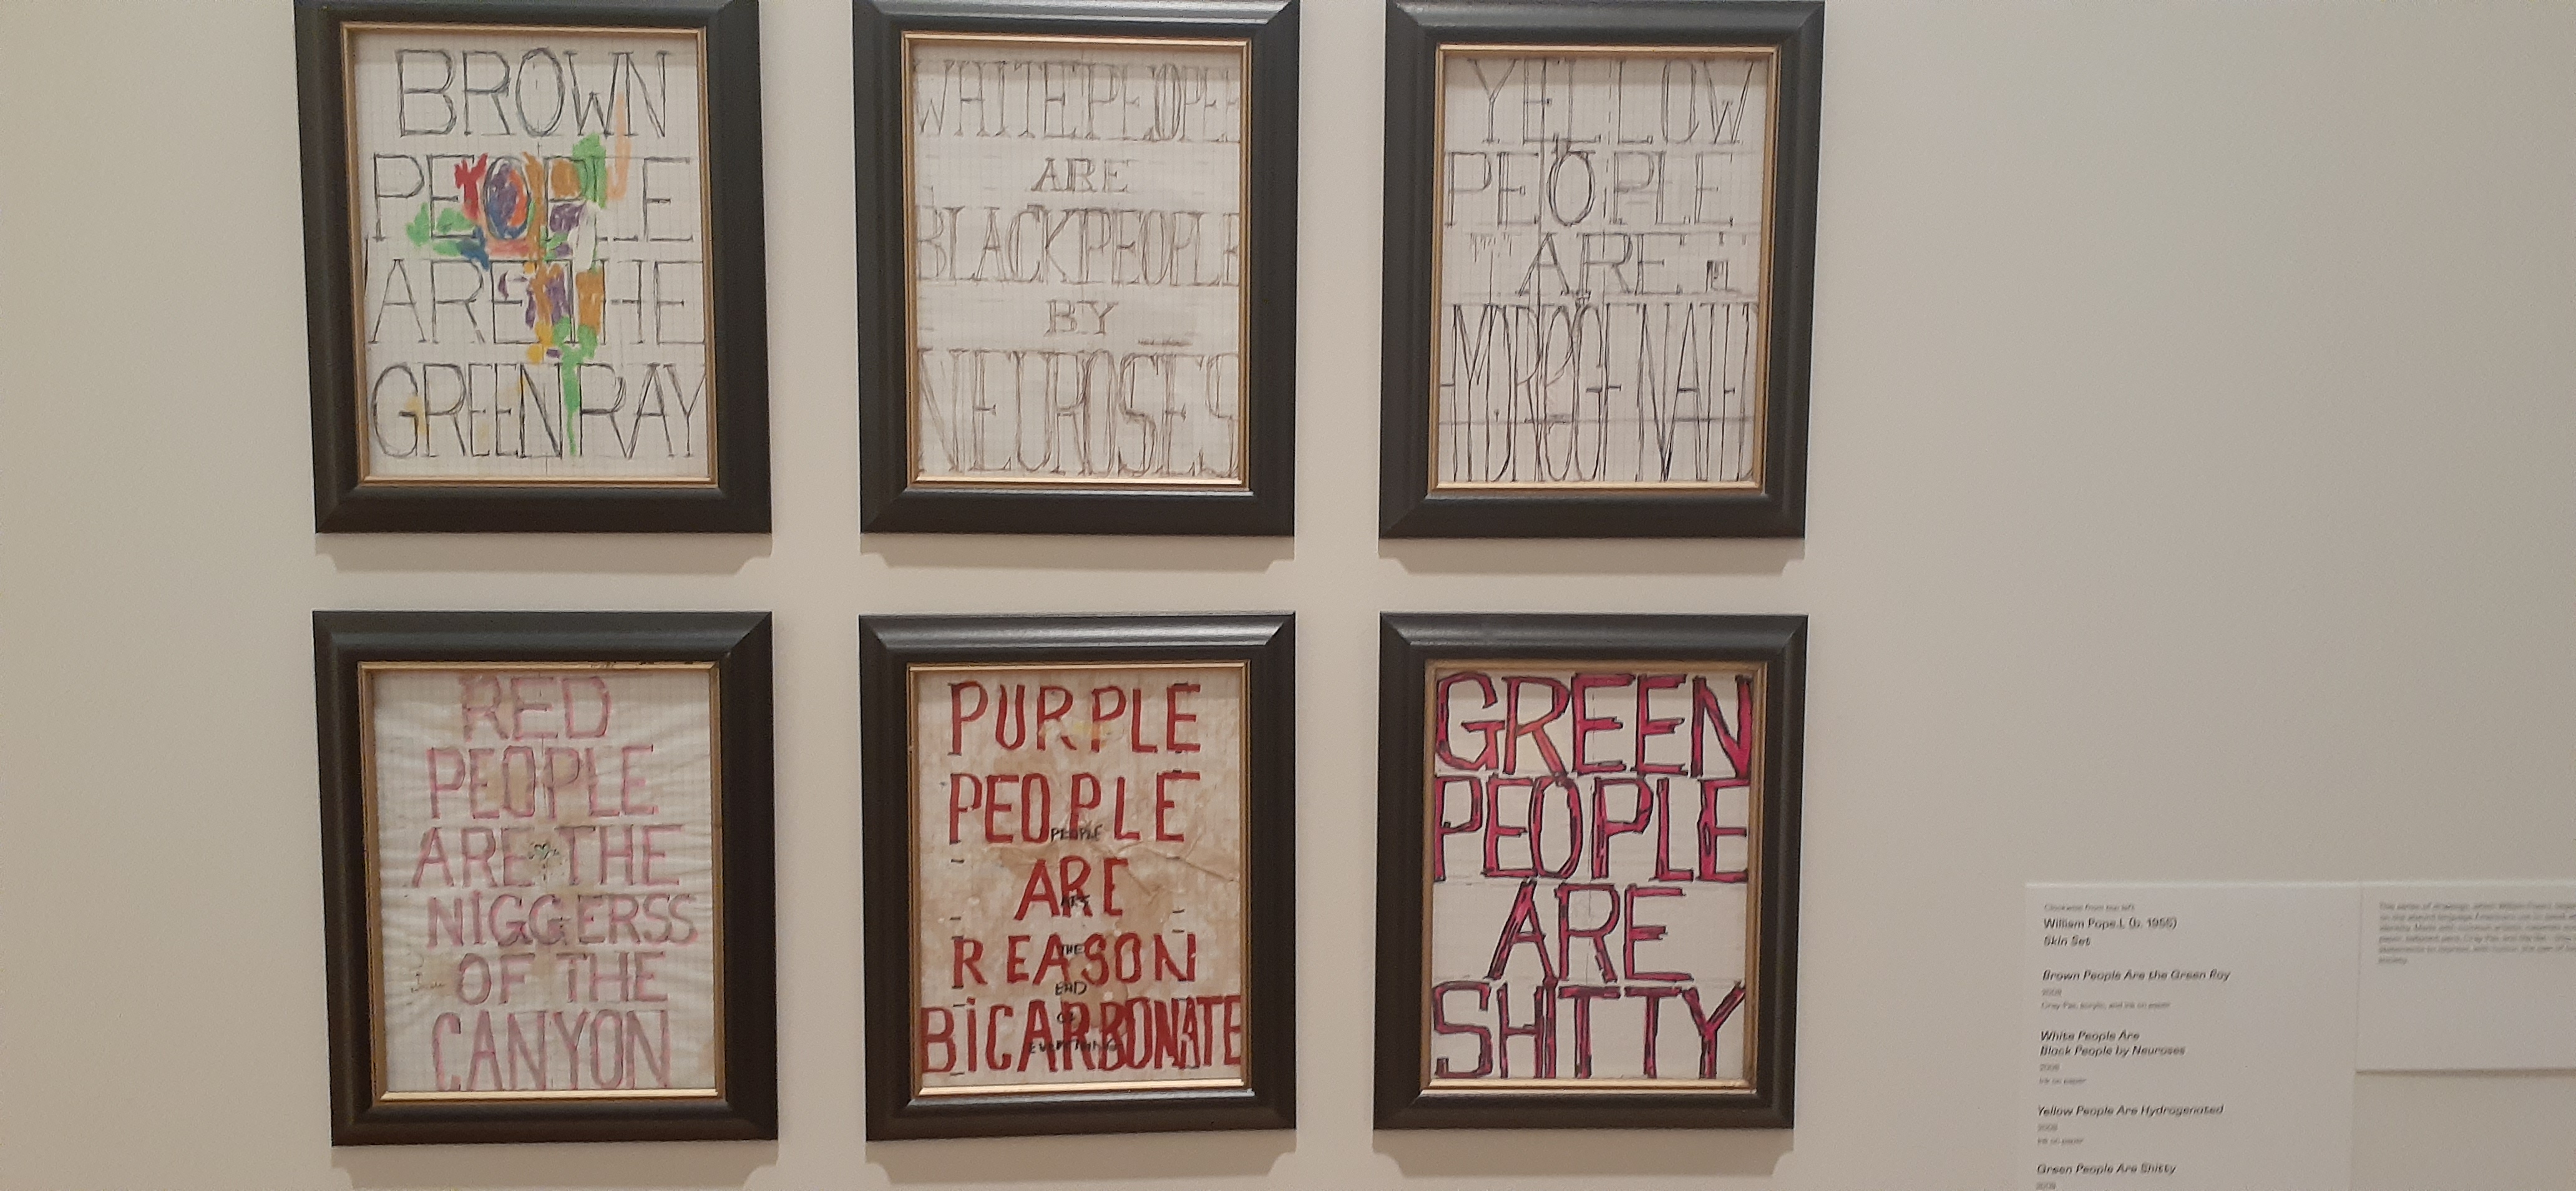 BROWN
PEOPLE
ARE THE
GREEN RAY
WHITE PEOPLE
ARE
BLACK PEOPLE
BY
NEUROSES
YELLOW
PEOPLE
ARE
HYDROGENATED
RED
PEOPLE
ARE THE
NIGGERSS
OF THE
CANYON
PURPLE
PEOPLE
PEOPLE
ARE
ART
REASON
THE
END
BICARBONATE
OF
EVERYTHING
GREEN
PEOPLE
ARE
SHITTY
Clockwise from top left
William Pope.L (b. 1955)
Skin Set
Brown People Are the Green Ray
2008
Cray-Pas, acrylic, and ink on paper
White People Are
Black People by Neuroses
2008
Ink on paper
Yellow People Are Hydrogenated
2008
Ink on paper
Green People Are Shitty
2008